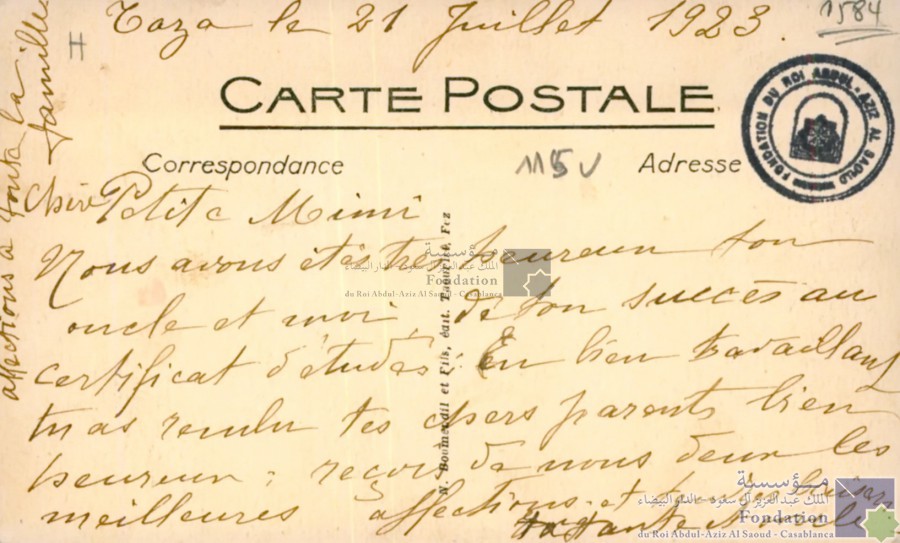 Taza le 21 Juillet 1923.
1584
H
CARTE POSTALE
Correspondance
1115 v
Adresse
FONDATION DU ROI ABDUL-AZIZ AL SAOUD
Chère Petite Mimi
Nous avons étés très heureux ton
oncle et moi, de ton succès au
certificat d'études: En bien travaillant
tu as rendu tes chers parents bien
heureux: reçois de nous deux les
meilleures affections et
ta tante et oncle
affections à toute la
famille
N. Boumendil et Fils, édit. Taourirt, Fez
مؤسسة
الملك عبد العزيز آل سعود - الدار البيضاء
Fondation
du Roi Abdul-Aziz Al Saoud - Casablanca
مؤسسة
الملك عبد العزيز آل سعود - الدار البيضاء
Fondation
du Roi Abdul-Aziz Al Saoud - Casablanca